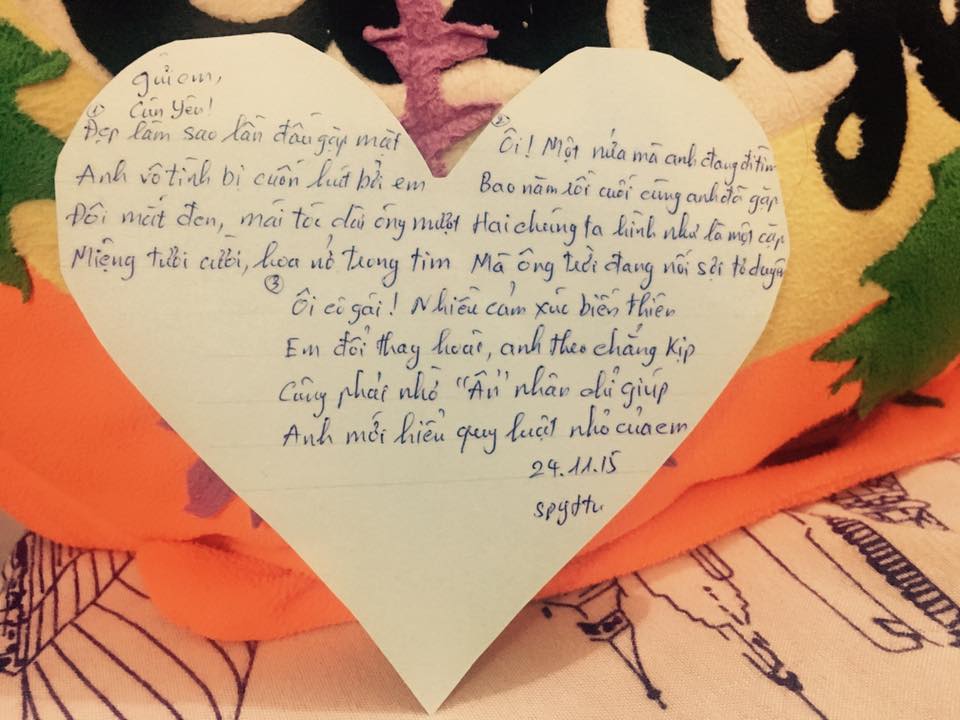 Gửi em,
Cún Yêu!
①
Đẹp làm sao lần đầu gặp mặt
Anh vô tình bị cuốn hút bởi em
Đôi mắt đen, mái tóc dài óng mượt
Miệng tươi cười, hoa nở trong tim
②
Ôi! Một nửa mà anh đang đi tìm
Bao năm rồi cuối cùng anh đã gặp
Hai chúng ta hình như là một cặp
Mà ông trời đang nối sợi tơ duyên
③
Ôi cô gái! Nhiều cảm xúc biến thiên
Em đổi thay hoài, anh theo chẳng kịp
Cũng phải nhờ "Ân" nhân chỉ giúp
Anh mới hiểu quy luật nhỏ của em
24.11.15
spydtu